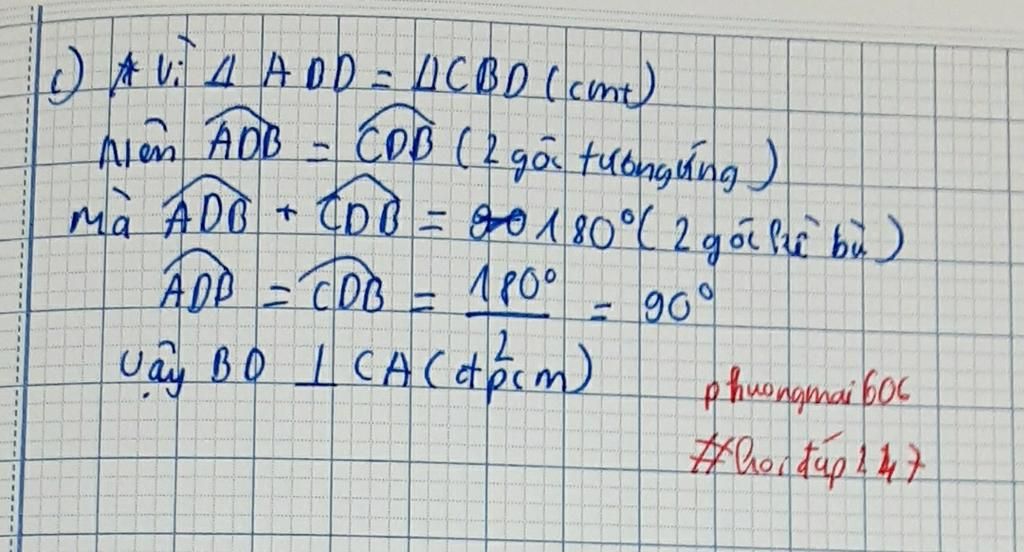 c) * Vì Δ ADD = ΔCBD (cmt)
Nên ADB = CDB (2 góc tương ứng)
Mà ADB + CDB = 180° (2 góc kề bù)
ADB = CDB = 180°/2 = 90°
Vậy BD ⊥ CA (đpcm)
phuongmai606
#hoidap247